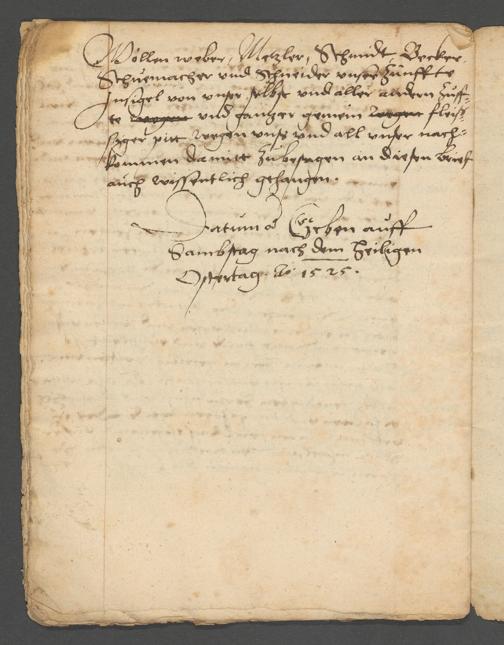 Wollen weber, Metzler, Schmidt Becker,
Schuemacher vnd Schneider vnser Zunffte
Insigel von vnser selbst vnd aller andern Zunff-
te wegen vnd gantzer gemein wegen fleis-
siger pitt wegen vnns vnd all vnser nach-
kommen damitt Zubesagen an diesen brief
auch wissentlich gehangen.
Datum Geben auff
Sambstag nach dem Heiligen
Ostertag. Ao 1525.